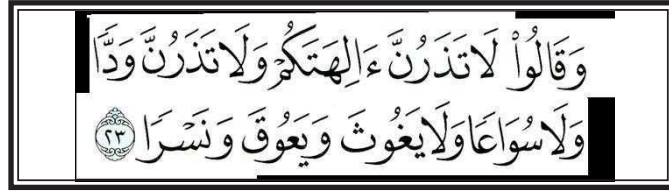 وَقَالُوا۟ لَا تَذَرُنَّ ءَالِهَتَكُمْ وَلَا تَذَرُنَّ وَدًّا
وَلَا سُوَاعًا وَلَا يَغُوثَ وَيَعُوقَ وَنَسْرًا ٢٣